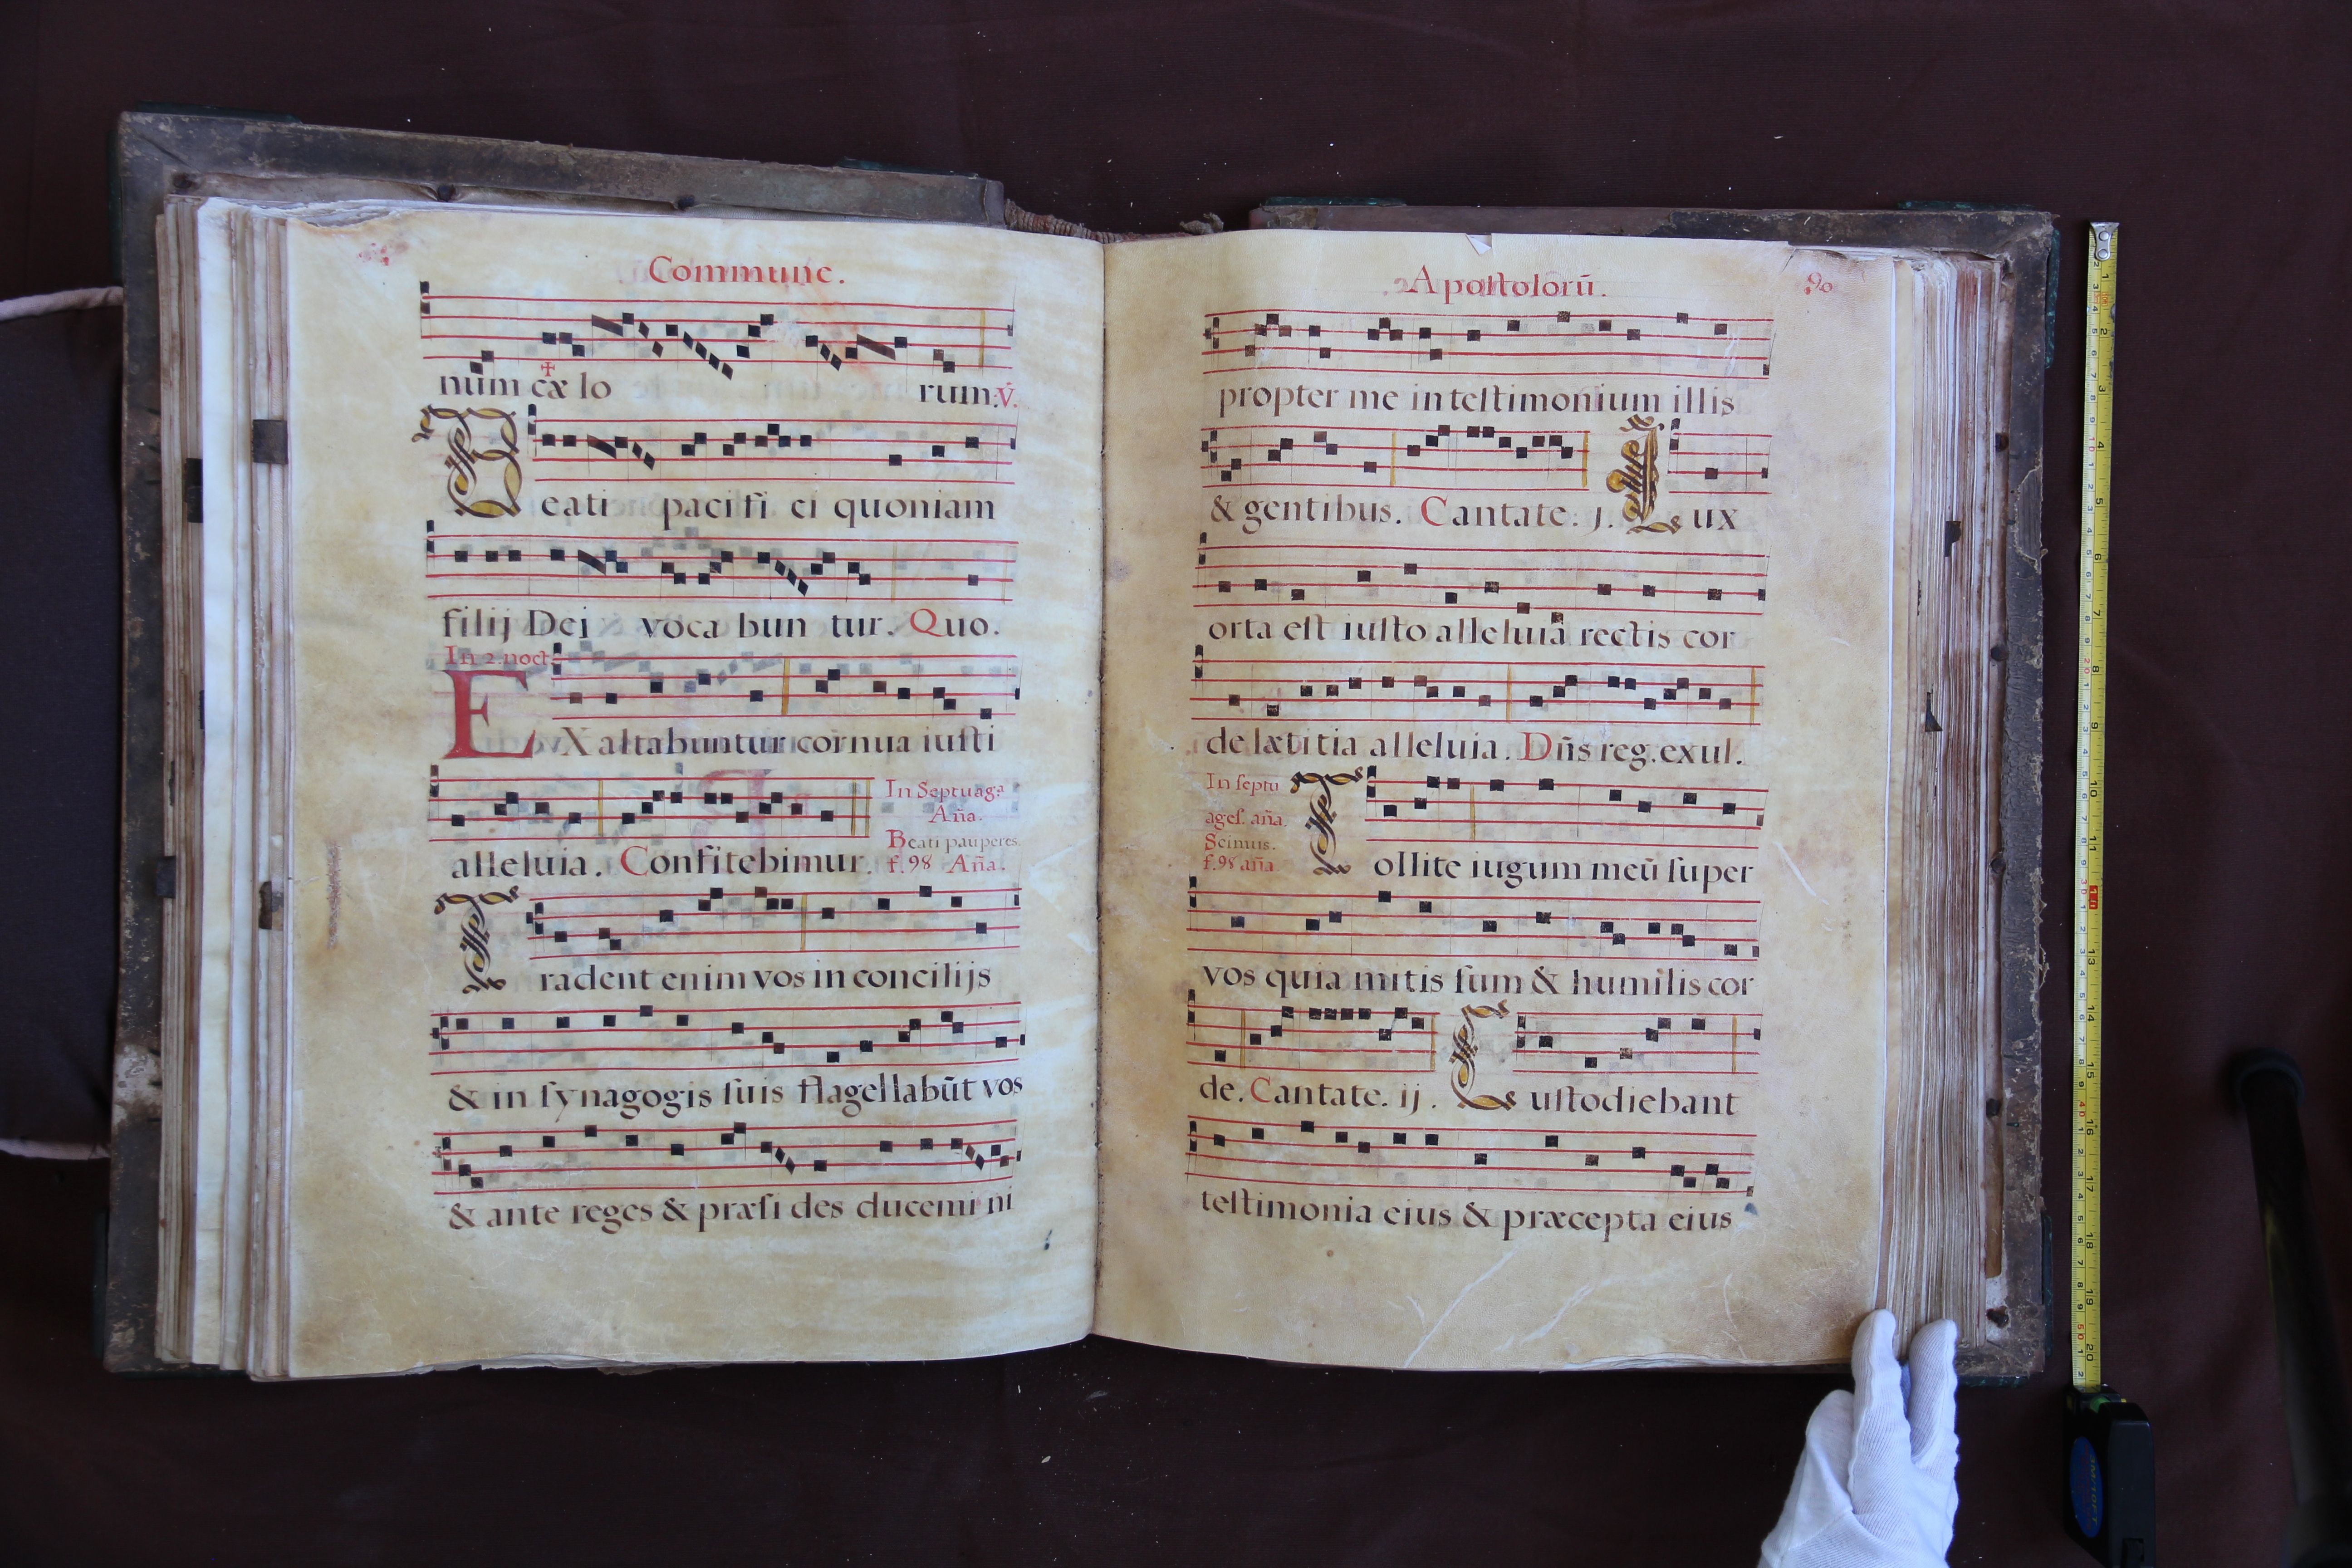 Commune.
num cæ lo rum. ℣.
Beati pacifi ci quoniam
filij Dei voca bun tur. Quo.
In 2. noct.
EXaltabuntur cornua iusti
alleluia. Confitebimur.
In Septuag.ª
Aña.
Beati pauperes.
f. 98 Aña.
Tradent enim vos in concilijs
& in synagogis suis flagellabūt vos
& ante reges & præsi des ducemi ni
Apostolorū.
90
propter me in testimonium illis
& gentibus. Cantate. j. Lux
orta est iusto alleluia rectis cor
de lætitia alleluia. Dñs reg. exul.
In septu
ages. aña.
Scimus.
f. 98 aña
Tollite iugum meū super
vos quia mitis sum & humilis cor
de. Cantate. ij. Custodiebant
testimonia eius & præcepta eius